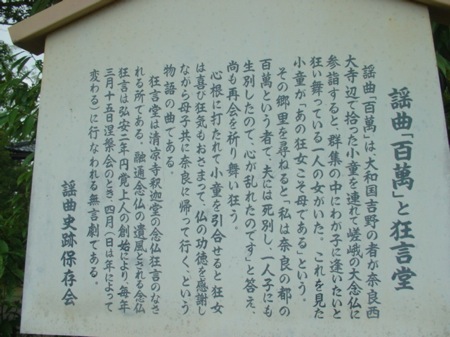 謡曲「百萬」と狂言堂
謡曲「百萬」は、大和国吉野の者が奈良西
大寺辺で拾った小童を連れて嵯峨の大念仏に
参詣すると、群集の中にわが子に逢いたいと
狂い舞っている一人の女がいた。これを見た
小童が「あの狂女こそ母である」という。
その郷里を尋ねると「私は奈良の都の
百萬という者で、夫には死別し、一人子にも
生別したので、心が乱れたのです」と答え、
尚も再会を祈り舞い狂う。
心根に打たれて小童を引合せると、狂女
は喜び狂気もおさまって、仏の功徳を感謝し
ながら母子共に奈良に帰って行く、という
物語の曲である。
狂言堂は清凉寺釈迦堂の念仏狂言のなさ
れる所である。融通念仏の遺風とされる念仏
狂言は弘安二年円覚上人の創始により、毎年
三月十五日涅槃会のとき、四月（日は年によって
変わる）に行なわれる無言劇である。
謡曲史跡保存会